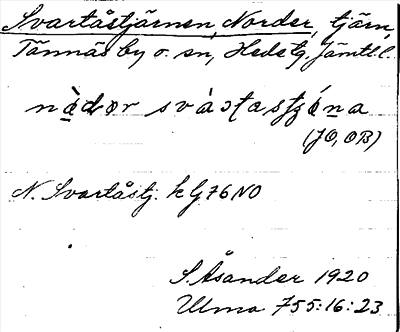 Svartåstjärnen, Norder, tjärn,
Tännäs by o. sn, Hedetg, Jämtl. l.
(JO, OB)
N. Svartåstj. k G76NO
S. Åsander 1920
Ulma 755:16:23